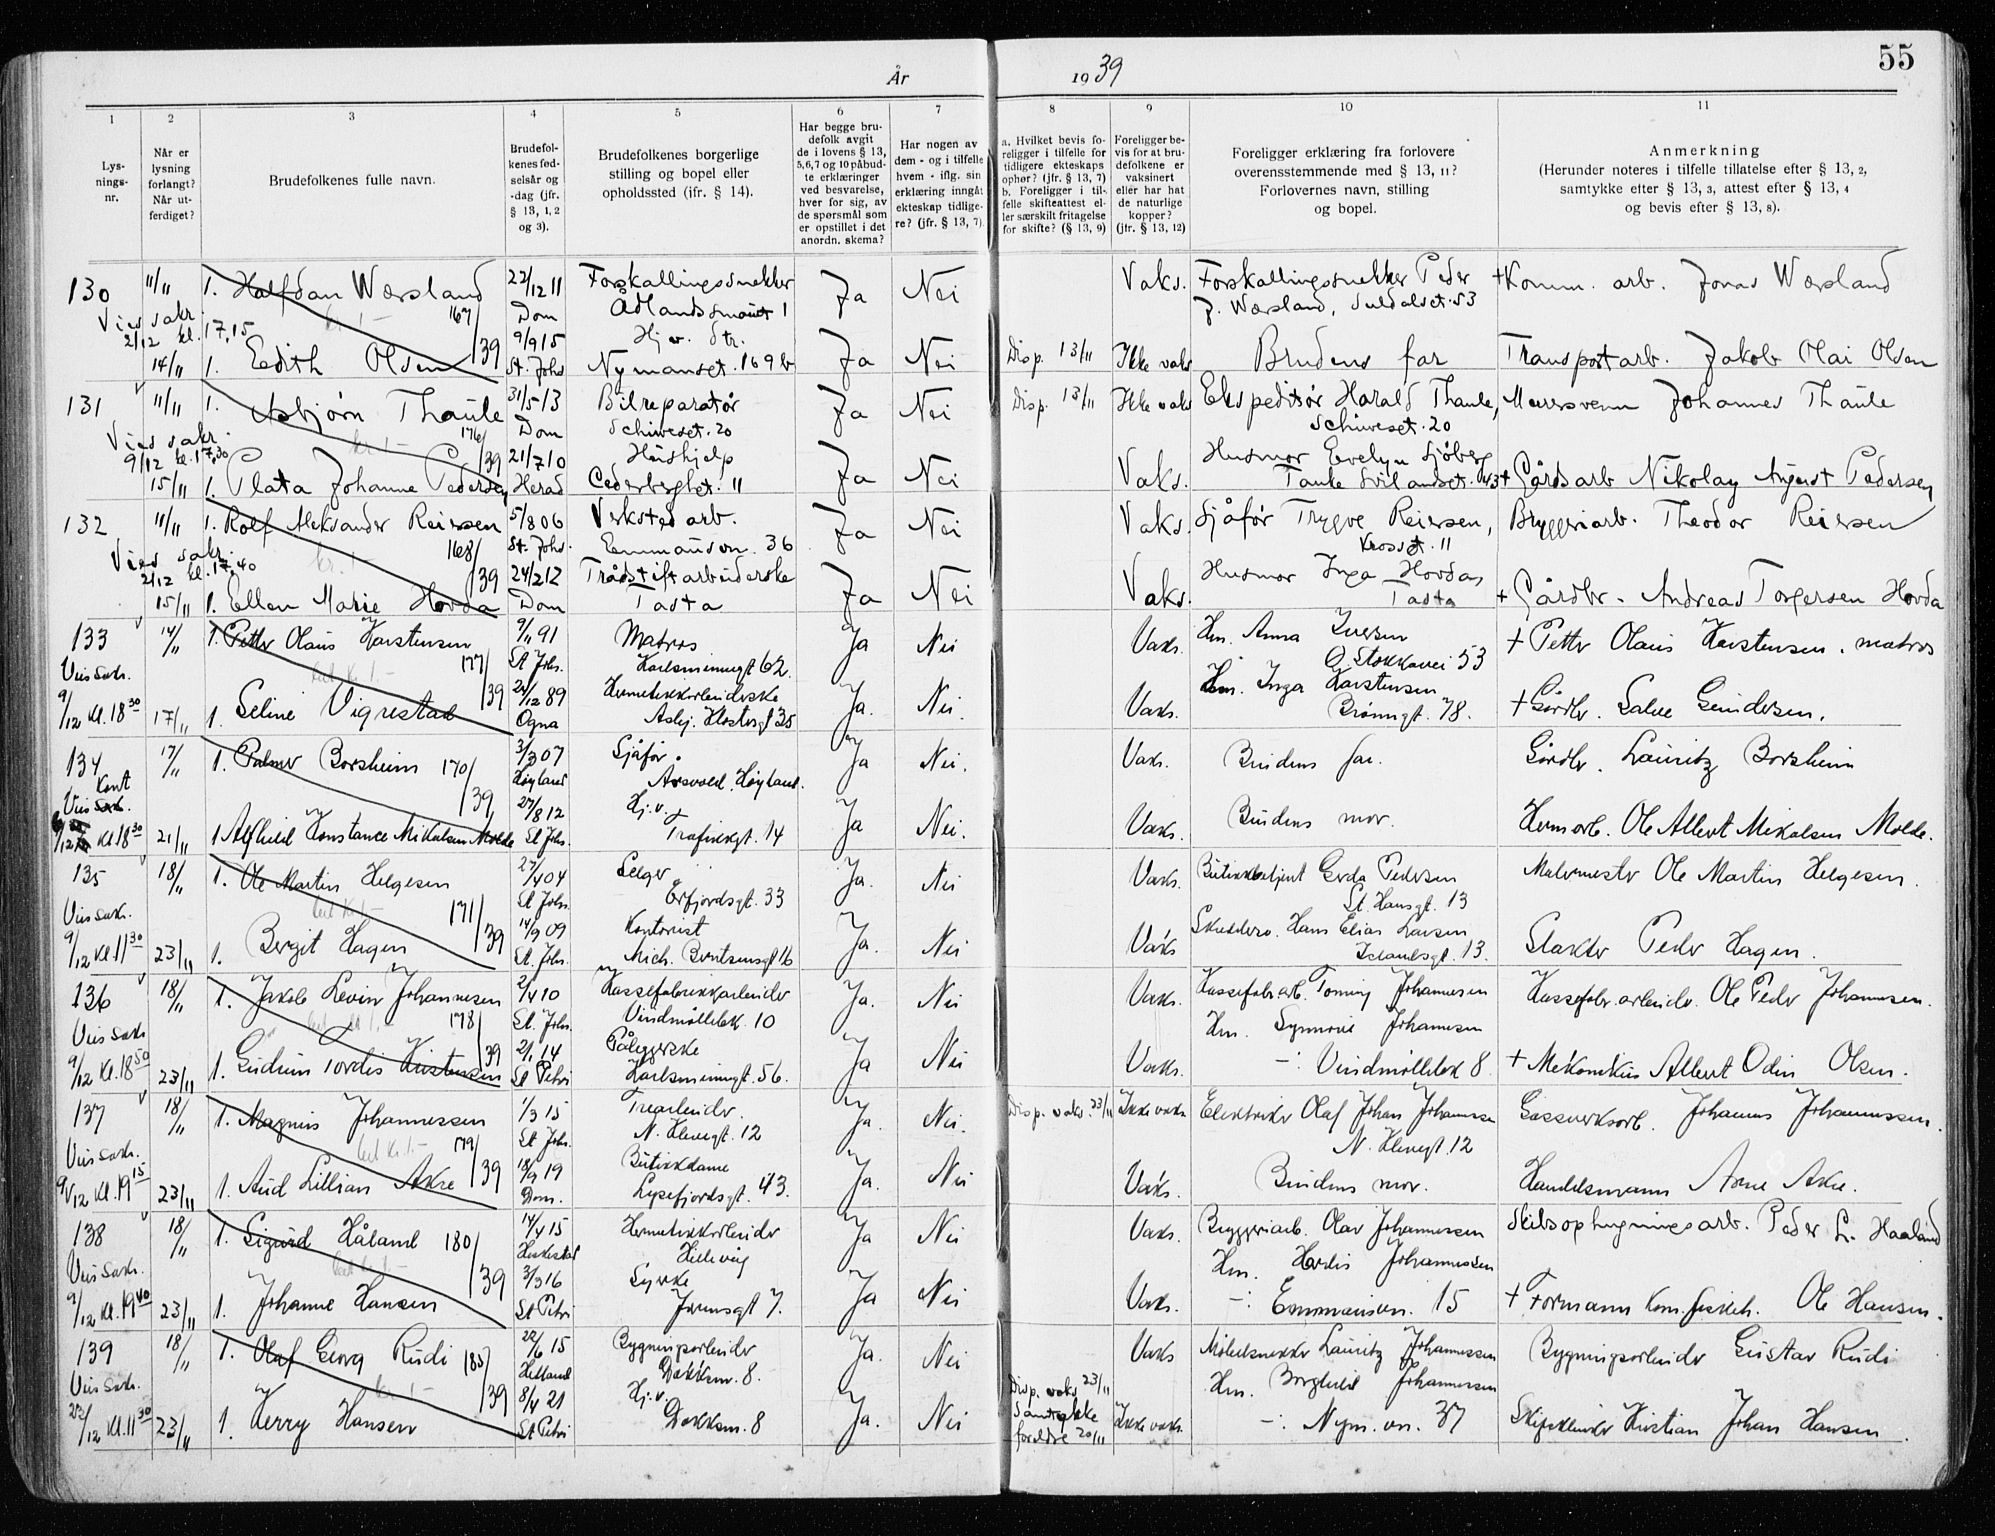 År 1939
55
1 2 3 4 5 6 7 8 9 10 11
Lysningsnr.
Når er lysning forlangt? Når utferdiget?
Brudefolkenes fulle navn.
Brudefolkenes fødselsår og -dag (jfr. § 13, 1, 2 og 3).
Brudefolkenes borgerlige stilling og bopel eller opholdssted (ifr. § 14).
Har begge brudefolk avgit de i lovens § 13, 5,6,7 og 10 påbudte erklæringer ved besvarelse, hver for sig, av de spørsmål som er opstillet i det anordn. skema?
Har nogen av dem - og i tilfelle hvem - iflg. sin erklæring inngåt ekteskap tidligere? (jfr. § 13, 7).
a. Hvilket bevis foreligger i tilfelle for tidligere ekteskaps ophør? (jfr. § 13, 7)
b. Foreligger i tilfelle skifteattest eller særskilt fritagelse for skifte? (§ 13, 9)
Foreligger bevis for at brudefolkene er vaksinert eller har hat de naturlige kopper? (jfr. § 13, 12)
Foreligger erklæring fra forlovere overensstemmende med § 13, 11? Forlovernes navn, stilling og bopel.
Anmerkning
(Herunder noteres i tilfelle tillatelse efter § 13, 2, samtykke etter § 13, 3, attest efter § 13, 4 og bevis efter § 13, 8).
130 11/11 1. Halfdan Wersland 22/12 11 Forskallingssnekker Ja Nei Vaks. Forskallingssnekker Peder + Komm. arb. Jonas Wersland
Vies sakr. 2/12 kl. 17,15 167/39 Dom Ådlandssmauet 1 J. Wersland, Suldalsgt. 53
14/11 1. Edith Olsen 9/9 15 Hj. v. Str. Ja Nei Disp. 13/11 Ikke vaks Brudens far Transportarb. Jakob Olai Olsen
St. Johs Nymansgt. 169 b
131 11/11 1. Asbjørn Thaule 31/5 13 Bilreparatør Ja Nei Disp. 13/11 Ikke vaks Ekspeditør Harald Thaule, Murersvenn Johannes Thaule
Vies sakr. 9/12 kl. 17,30 176/39 Dom Schiwesgt. 20 Schiwesgt. 20
15/11 1. Plata Johanne Pedersen 21/7 10 Hushjelp Ja Nei Vaks. Husmor Evelyn Sjøberg + Gårdsarb Nikolay August Pedersen
Herad Cederberghgt. 11 Tanke Svilandsgt. 43
132 11/11 1. Rolf Aleksander Reiersen 5/8 06 Verksted arb. Ja Nei Vaks. Sjåfør Trygve Reiersen, Bryggeriarb. Theodor Reiersen
Vies sakr. 2/12 kl. 17,40 kr. 1 168/39 St. Johs. Emmausvn. 36 Krossgt. 11
15/11 1. Ellen Marie Hovda 24/2 12 Trådstiftarbeiderske Ja Nei Vaks. Husmor Inga Hovda + Gårdbr. Andreas Torgersen Hovda
Dom Tasta Tasta
133 14/11 1. Petter Olaus Karstensen 9/11 91 Matros Ja Nei Vaks. Hm. Anna Iversen + Petter Olaus Karstensen. matros
Vies sakr. 177/39 St Johs. Karlsminnegt 62. Ø. Stokkavei 53
9/12 Kl. 18 30 17/11 1. Seline Vigrestad 24/12 89 Hermetikkarbeiderske Ja. Nei. Vaks. Hm. Inga Karstensen + Gårdbr. Salve Gundersen.
Ogna Asbj. Klostergt 35 Brønngt. 78.
134 17/11 1. Palmer Borsheim 170/39 3/3 07 Sjåfør. Ja Nei. Vaks. Brudens far. Gårdbr. Lauritz Borsheim
Kont Vies Høyland Asvold. Høyland.
Kl 18 30 21/11 1 Alfhild Konstance Mikalsen Molde 27/8 12 Hj. v. Ja Nei. Vaks. Brudens mor. Hermarb. Ole Albert Mikalsen Molde.
St Johs. Trafikkgt. 14
135 18/11 1. Ole Martin Helgesen 27/4 04 Selger Ja. Nei Vaks. Butikkbetjent Gerda Pedersen Malermester Ole Martin Helgesen.
Vies sakr. 171/39 St Johs. Erfjordsgt. 33 St. Hansgt. 13
9/12 Kl. 11 30 23/11 1. Bergit Hagen 14/9 09 Kontorist Ja. Nei Vaks Skreddersv. Hans Elias Larsen Slakter Peder Hagen.
St. Johs. Mich. Berntsensgt 16 Islandsgt. 13.
136 18/11 1. Jakob Levin Johannesen 2/4 10 Kassefabrikkarbeider Ja. Nei Vaks. Kassefabr. arb. Tonny Johannesen Kassefabr. arbeider. Ole Peder Johannesen.
Vies sakr 178/39 St. Johs. Vindmøllebk. 10 Hm. Synnøve Johannesen
9/12 Kl. 18 50 23/11 1. Gudrun Tordis Kristensen 2/1 14 Påleggerske Ja Nei Vaks. -:- Vindmøllebk 8. + Mekanikus Albert Odin Olsen.
St Petri Karlsminnegt. 56.
137 18/11 1. Magnus Johannessen 1/3 15 Trearbeider. Ja. Nei. Disp. vaks. 23/11 Ikke vaks Elektriker Olaf Johan Johannessen Gassverksarb. Johannes Johannessen.
Vies sakr. 179/39 St Johs. N. Klevegt. 12 N. Klevegt. 12
9/12 Kl. 19 15 23/11 1. Aud Lillian Akre 18/9 19 Butikkdame Ja. Nei Vaks. Brudens mor. Handelsmann Arne Akre.
Dom. Lysefjordsgt. 43.
138 18/11 1. Sigurd Håland 180/39 14/4 15 Hermetikkarbeider Ja Nei Vaks. Bryggeriarb. Olav Johannessen Skibsophugningsarb. Peder L. Haaland
Vies sakr. Heskestad Hillevåg Hm. Hordis Johannessen
9/12 Kl. 19 40 23/11 1. Johanne Hansen 3/3 16 Syerske Ja Nei Vaks. -:- Emmausvn. 15 + Formann Kom. fiskeh. Ole Hansen.
St Petri Jørensgt 7.
139 18/11 1. Olaf Georg Rudi 185/39 22/6 15 Bygningsarbeider Ja. Nei Vaks Møbelsnekker Lauritz Johannessen Bygningsarbeider Gustav Rudi
Vies sakr. Hetland Dokksm. 8. Hm. Borghild Johannessen
23/12 Kl. 11 30 23/11 1. Kerry Hansen 8/4 21 Hj. v. Ja. Nei Disp. vaks 23/11 Samtykke foreldre 20/11 Ikke vaks. -:- Nym. vn. 37 Skipsbleider Kristian Johan Hansen.
St Petri Dokksm. 8